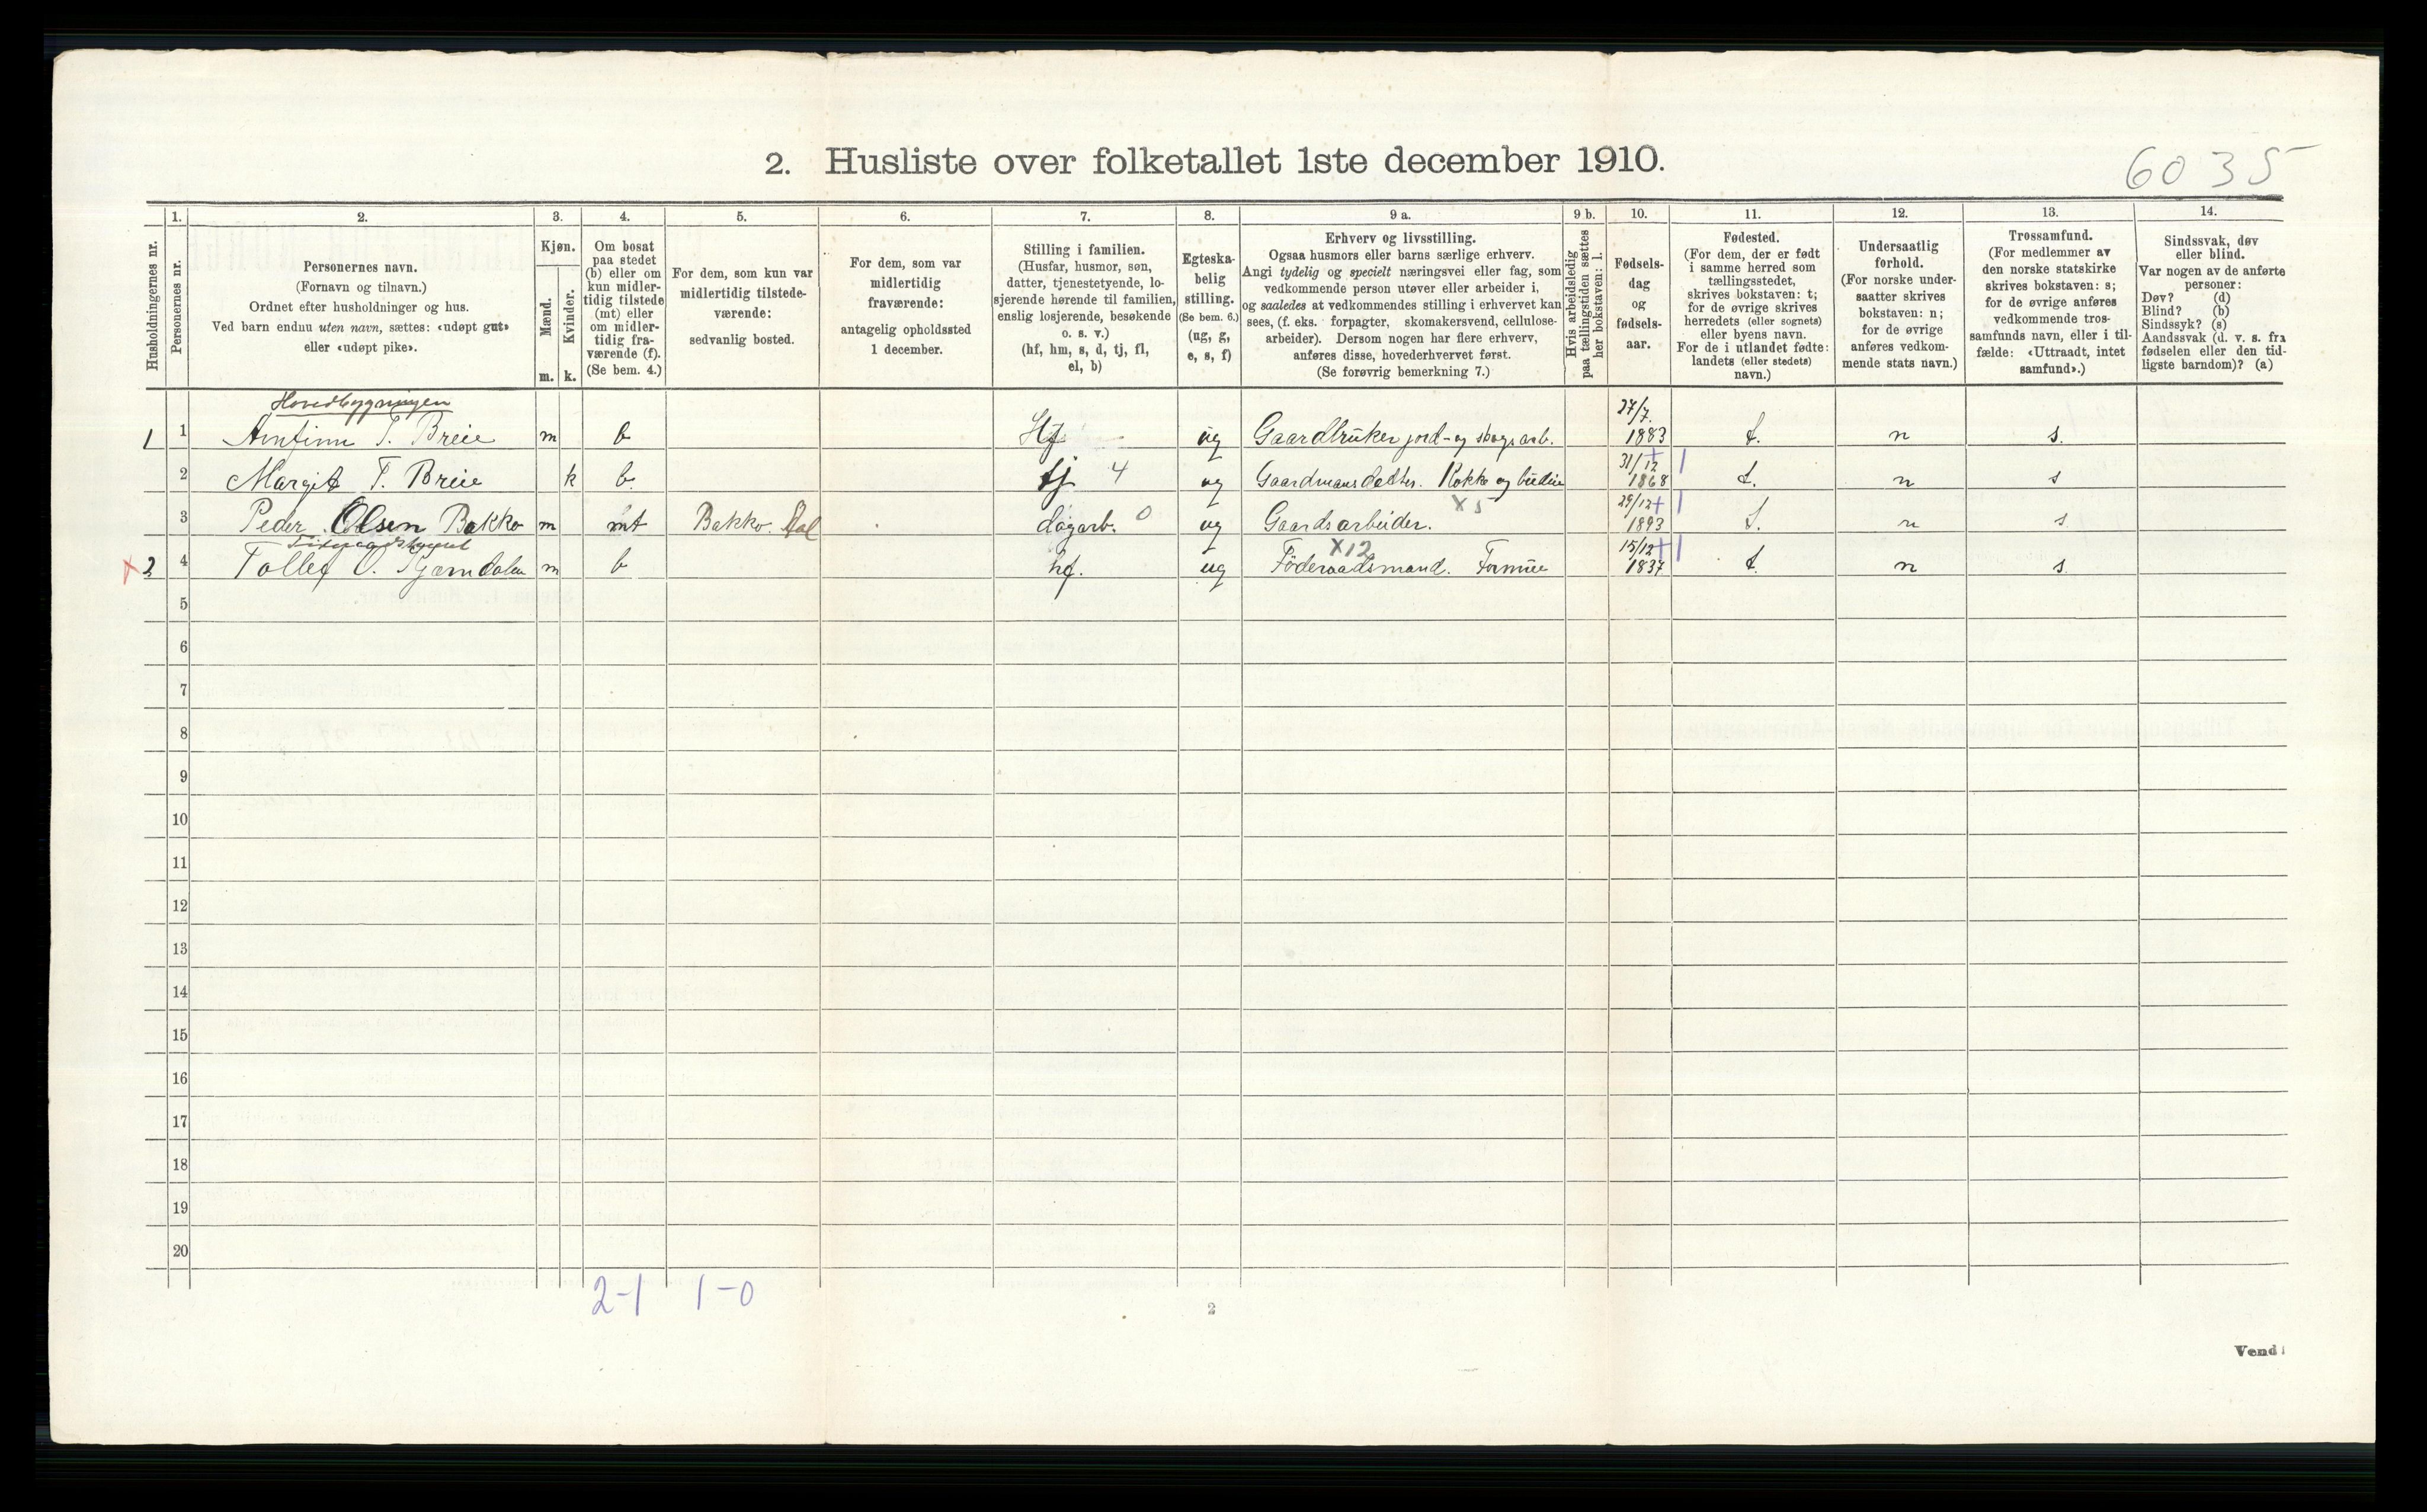 2. Husliste over folketallet 1ste december 1910.
6035
Husholdningernes nr.
1.
Personernes nr.
2.
Personernes navn.
(Fornavn og tilnavn.)
Ordnet efter husholdninger og hus.
Ved barn endnu uten navn, sættes: «udøpt gut»
eller «udøpt pike».
3.
Kjøn.
Mænd.
Kvinder.
m. k.
4.
Om bosat
paa stedet
(b) eller om
kun midler-
tidig tilstede
(mt) eller
om midler-
tidig fra-
værende (f).
(Se bem. 4.)
5.
For dem, som kun var
midlertidig tilstede-
værende:
sedvanlig bosted.
6.
For dem, som var
midlertidig
fraværende:
antagelig opholdssted
1 december.
7.
Stilling i familien.
(Husfar, husmor, søn,
datter, tjenestetyende, lo-
sjerende hørende til familien,
enslig losjerende, besøkende
o. s. v.)
(hf, hm, s, d, tj, fl,
el, b)
8.
Egteska-
belig
stilling.
(Se bem. 6.)
(ug, g,
e, s, f)
9 a.
Erhverv og livsstilling.
Ogsaa husmors eller barns særlige erhverv.
Angi tydelig og specielt næringsvei eller fag, som
vedkommende person utøver eller arbeider i,
og saaledes at vedkommendes stilling i erhvervet kan
sees, (f. eks. forpagter, skomakersvend, cellulose-
arbeider). Dersom nogen har flere erhverv,
anføres disse, hovederhvervet først.
(Se forøvrig bemerkning 7.)
9 b.
Hvis arbeidsledig
paa tællingstiden sættes
her bokstaven: l.
10.
Fødsels-
dag
og
fødsels-
aar.
11.
Fødested.
(For dem, der er født
i samme herred som
tællingsstedet,
skrives bokstaven: t;
for de øvrige skrives
herredets (eller sognets)
eller byens navn.
For de i utlandet fødte:
landets (eller stedets)
navn.)
12.
Undersaatlig
forhold.
(For norske under-
saatter skrives
bokstaven: n;
for de øvrige
anføres vedkom-
mende stats navn.)
13.
Trossamfund.
(For medlemmer av
den norske statskirke
skrives bokstaven: s;
for de øvrige anføres
vedkommende tros-
samfunds navn, eller i til-
fælde: «Uttraadt, intet
samfund».)
14.
Sindssvak, døv
eller blind.
Var nogen av de anførte
personer:
Døv? (d)
Blind? (b)
Sindssyk? (s)
Aandssvak (d. v. s. fra
fødselen eller den tid-
ligste barndom)? (a)
Hovedbygningen
1 1 Arnfinn T. Breie m b Hf ug Gaardbruker jord- og skogsarb. 27/7. 1883 t. n s.
2 Margit T. Breie k b. tj 4 ug Gaardmansdatter. Kokke og budeie 31/12 1868 t. n s
3 Peder Olsen Bakko m mt Bakko. Aal dagarb. 0 ug Gaardsarbeider. X 5 29/12 1893 t. n s
X 2 4 Tollef O. m b hf. ug Föderaadsmand. Formue X12 15/12 1837 t. n s.
5
6
7
8
9
10
11
12
13
14
15
16
17
18
19
20
2-1 1-0
2
Vend!